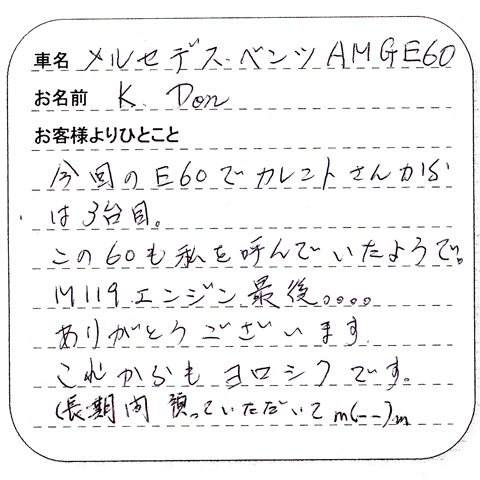 車名 メルセデス・ベンツ AMG E60
お名前 K. Don
お客様よりひとこと
今回のE60でカレントさんから
は3台目。
この60も私を呼んでいたようで。
M119エンジン最後。。。。
ありがとうございます
これからもヨロシクです。
(長期間 預っていただいて m(--)m